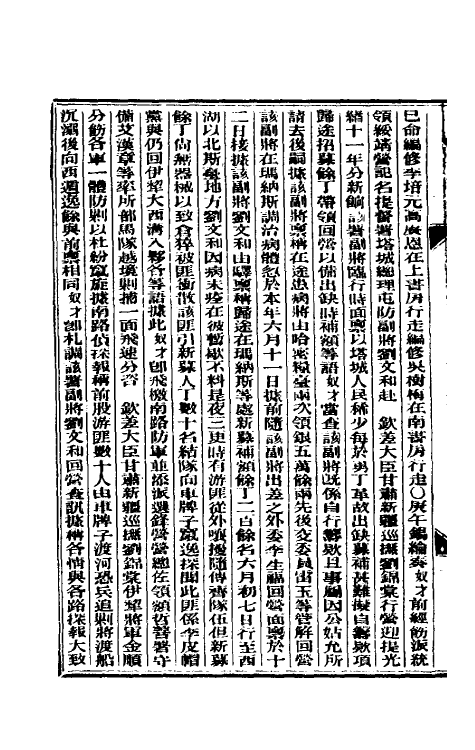 已命編修李培元高賡恩在上書房行走編修吳樹梅在南書房行走○庚午錫綸奏奴才前經飭派統
領綏靖營記名提督署塔城總理屯防副將劉文和赴 欽差大臣甘肅新疆巡撫劉錦棠行營迎提光
緒十一年分新餉該署副將臨行時面稟以塔城人民稀少每於勇丁革故出缺募補甚難擬自籌款項
歸途招募餘丁帶領回營以備出缺時補額等語奴才當查該副將既係自行籌款且事屬因公姑允所
請去後嗣據該副將稟稱在途患病將由哈密糧臺兩次領銀五萬餘兩先後交委員雷玉等管解回營
該副將在瑪納斯調治病體忽於本年六月十一日據前隨該副將出差之外委李生福回營面稟於十
二日接據該副將劉文和由驛稟稱歸途在瑪納斯等處新募補額餘丁二百餘名六月初七日行至西
湖以北斯臬地方劉文和因病未痊在彼暫歇不料是夜三更時有游匪從外嚷擾隨傳齊隊伍但新募
餘丁尚無器械以致倉猝被匪衝散該匪引新募人丁數十名結隊向車牌子竄逸探聞此匪係李皮帽
黨與仍回伊犂大西溝入夥各等語據此奴才卽飛檄南路防軍並添派選鋒營營總佐領額哲暫署守
備艾漢章等率所部馬隊越境剿捕一面飛速分咨 欽差大臣甘肅新疆巡撫劉錦棠伊犂將軍金順
分飭各軍一體防剿以杜紛竄旋據南路偵探報稱前股游匪數十人由車牌子渡河恐兵追剿將渡船
沉溺後向西遁逸餘與前稟相同奴才卽札調該署副將劉文和回營查訊據稱各情與各路探報大致